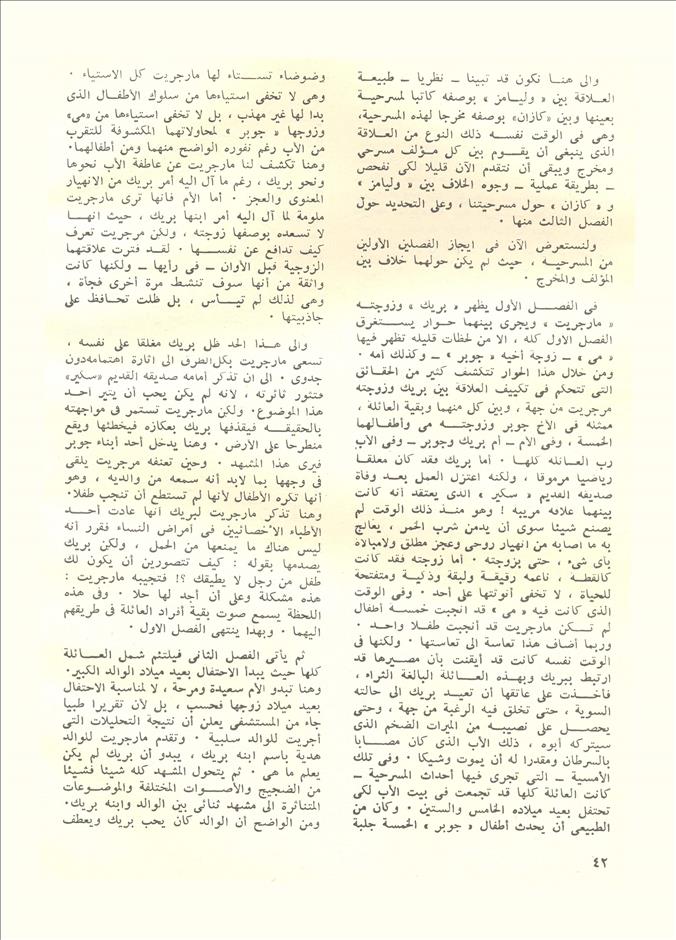 والى هنا نكون قد تبينا ــ نظريا ــ طبيعة
العلاقة بين « وليامز » بوصفه كاتبا لمسرحية
بعينها وبين «كازان» بوصفه مخرجا لهذه المسرحية،
وهى فى الوقت نفسه ذلك النوع من العلاقة
الذى ينبغى أن يقوم بين كل مؤلف مسرحى
ومخرج ويبقى أن نتقدم الآن قليلا لكى نفحص
ــ بطريقة عملية ــ وجوه الخلاف بين « وليامز »
و « كازان » حول مسرحيتنا ، وعلى التحديد حول
الفصل الثالث منها ٠
ولنستعرض الآن فى ايجاز الفصلين الأولين
من المسرحيه ، حيث لم يكن حولهما خلاف بين
المؤلف والمخرج ٠
فى الفصل الأول يظهر « بريك » وزوجته
« مارجريت » ويجرى بينهما حوار يستغرق
الفصل الاول كله ، الا من لحظات قليله تظهر فيها
« مى » ــ زوجة أخيه « جوبر » ــ وكذلك أمه ٠
ومن خلال هذا الحوار تتكشف كثير من الحقائق
التى تتحكم فى تكييف العلاقة بين بريك وزوجته
مرجريت من جهة ، وبين كل منهما وبقية العائلة ،
ممثله فى الأخ جوبر وزوجته مى وأطفالهما
الخمسة ، وفى الأم ــ أم بريك وجوبر ــ وفى الأب
رب العائله كلها ٠ أما بريك فقد كان معلقا
رياضيا مرموقا ، ولكنه اعتزل العمل بعد وفاة
صديقه القديم « سكير » الذى يعتقد أنه كانت
بينهما علاقه مريبه ! وهو منذ ذلك الوقت لم
يصنع شيئا سوى أن يدمن شرب الخمر ، يعالج
به ما اصابه من انهيار روحى وعجز مطلق ولامبالاة
بأى شىء ، حتى بزوجته ٠ أما زوجته فقد كانت
كالقطه ، ناعمه رقيقة ولبقة وذكية ومتفتحة
للحياة ، لا تخفى أنوثتها على أحد ٠ وفى الوقت
الذى كانت فيه « مى » قد انجبت خمسة أطفال
لم تكن مارجريت قد أنجبت طفلا واحد ٠
وربما أضاف هذا تعاسة الى تعاستها ٠ ولكنها فى
الوقت نفسه كانت قد أيقنت بأن مصيرها قد
ارتبط ببريك وبهذه العائلة البالغة الثراء ،
فأخذت على عاتقها أن تعيد بريك الى حالته
السوية ، حتى تخلق فيه الرغبة من جهة ، وحتى
يحصل على نصيبه من الميراث الضخم الذى
سيتركه أبوه ، ذلك الأب الذى كان مصابا
بالسرطان ومقدرا له أن يموت وشيكا ٠ وفى تلك
الأمسية ــ التى تجرى فيها أحداث المسرحية ــ
كانت العائلة كلها قد تجمعت فى بيت الأب لكى
تحتفل بعيد ميلاده الخامس والستين ٠ وكان من
الطبيعى أن يحدث أطفال « جوبر » الخمسة جلبة
وضوضاء تستاء لها مارجريت كل الاستياء ٠
وهى لا تخفى استياءها من سلوك الأطفال الذى
بدا لها غير مهذب ، بل لا تخفى استياءها من «مى»
وزوجها « جوبر » لمحاولاتهما المكشوفة للتقرب
من الأب رغم نفوره الواضح منهما ومن أطفالهما٠
وهنا تكشف لنا مارجريت عن عاطفة الأب نحوها
ونحو بريك ، رغم ما آل اليه أمر بريك من الانهيار
المعنوى والعجز ٠ أما الأم فانها ترى مارجريت
ملومة لما آل اليه أمر ابنها بريك ، حيث انها
لا تسعده بوصفها زوجته ، ولكن مرجريت تعرف
كيف تدافع عن نفسها ٠ لقد فترت علاقتهما
الزوجية قبل الأوان ــ فى رأيها ــ ولكنها كانت
واثقة من أنها سوف تنشط مرة أخرى فجأة ،
وهى لذلك لم تيأس ، بل ظلت تحافظ على
جاذبيتها ٠
والى هذا الحد ظل بريك مغلقا على نفسه ،
تسعى مارجريت بكل الطرق الى اثارة اهتمامه دون
جدوى ٠ الى ان تذكر أمامه صديقه القديم «سكير»
فتثور ثائرته ، لانه لم يكن يحب أن يثير احد
هذا الموضوع٠ ولكن مارجريت تستمر فى مواجهته
بالحقيقه فيقذفها بريك بعكازه فيخطئها ويقع
منطرحا على الأرض ٠ وهنا يدخل أحد أبناء جوبر
فيرى هذا المشهد ٠ وحين تعنفه مرجريت يلقى
فى وجهها بما لابد أنه سمعه من والديه ، وهو
أنها تكره الأطفال لأنها لم تستطع أن تنجب طفلا٠
وهنا تذكر مارجريت لبريك أنها عادت أحد
الأطباء الأخصائيين فى أمراض النساء فقرر أنه
ليس هناك ما يمنعها من الحمل ، ولكن بريك
يصدمها بقوله : كيف تتصورين أن يكون لك
طفل من رجل لا يطيقك ؟! فتجيبه مارجريت :
هذه مشكلة وعلى أن أجد لها حلا ٠ وفى هذه
اللحظة يسمع صوت بقية أفراد العائلة فى طريقهم
اليهما ٠ وبهذا ينتهى الفصل الاول ٠
ثم يأتى الفصل الثانى فيلتئم شمل العائلة
كلها حيث يبدأ الاحتفال بعيد ميلاد الوالد الكبير٠
وهنا تبدو الأم سعيدة ومرحة ، لا لمناسبة الاحتفال
بعيد ميلاد زوجها فحسب ، بل لأن تقريرا طبيا
جاء من المستشفى يعلن أن نتيجة التحليلات التى
أجريت للوالد سلبية ٠ وتقدم مارجريت للوالد
هدية باسم ابنه بريك ، يبدو أن بريك لم يكن
يعلم ما هى ٠ ثم يتحول المشهد كله شيئا فشيئا
من الضجيج والأصوات المختلفة والموضوعات
المتناثرة الى مشهد ثنائى بين الوالد وابنه بريك٠
ومن الواضح أن الوالد كان يحب بريك ويعطف
٤٢